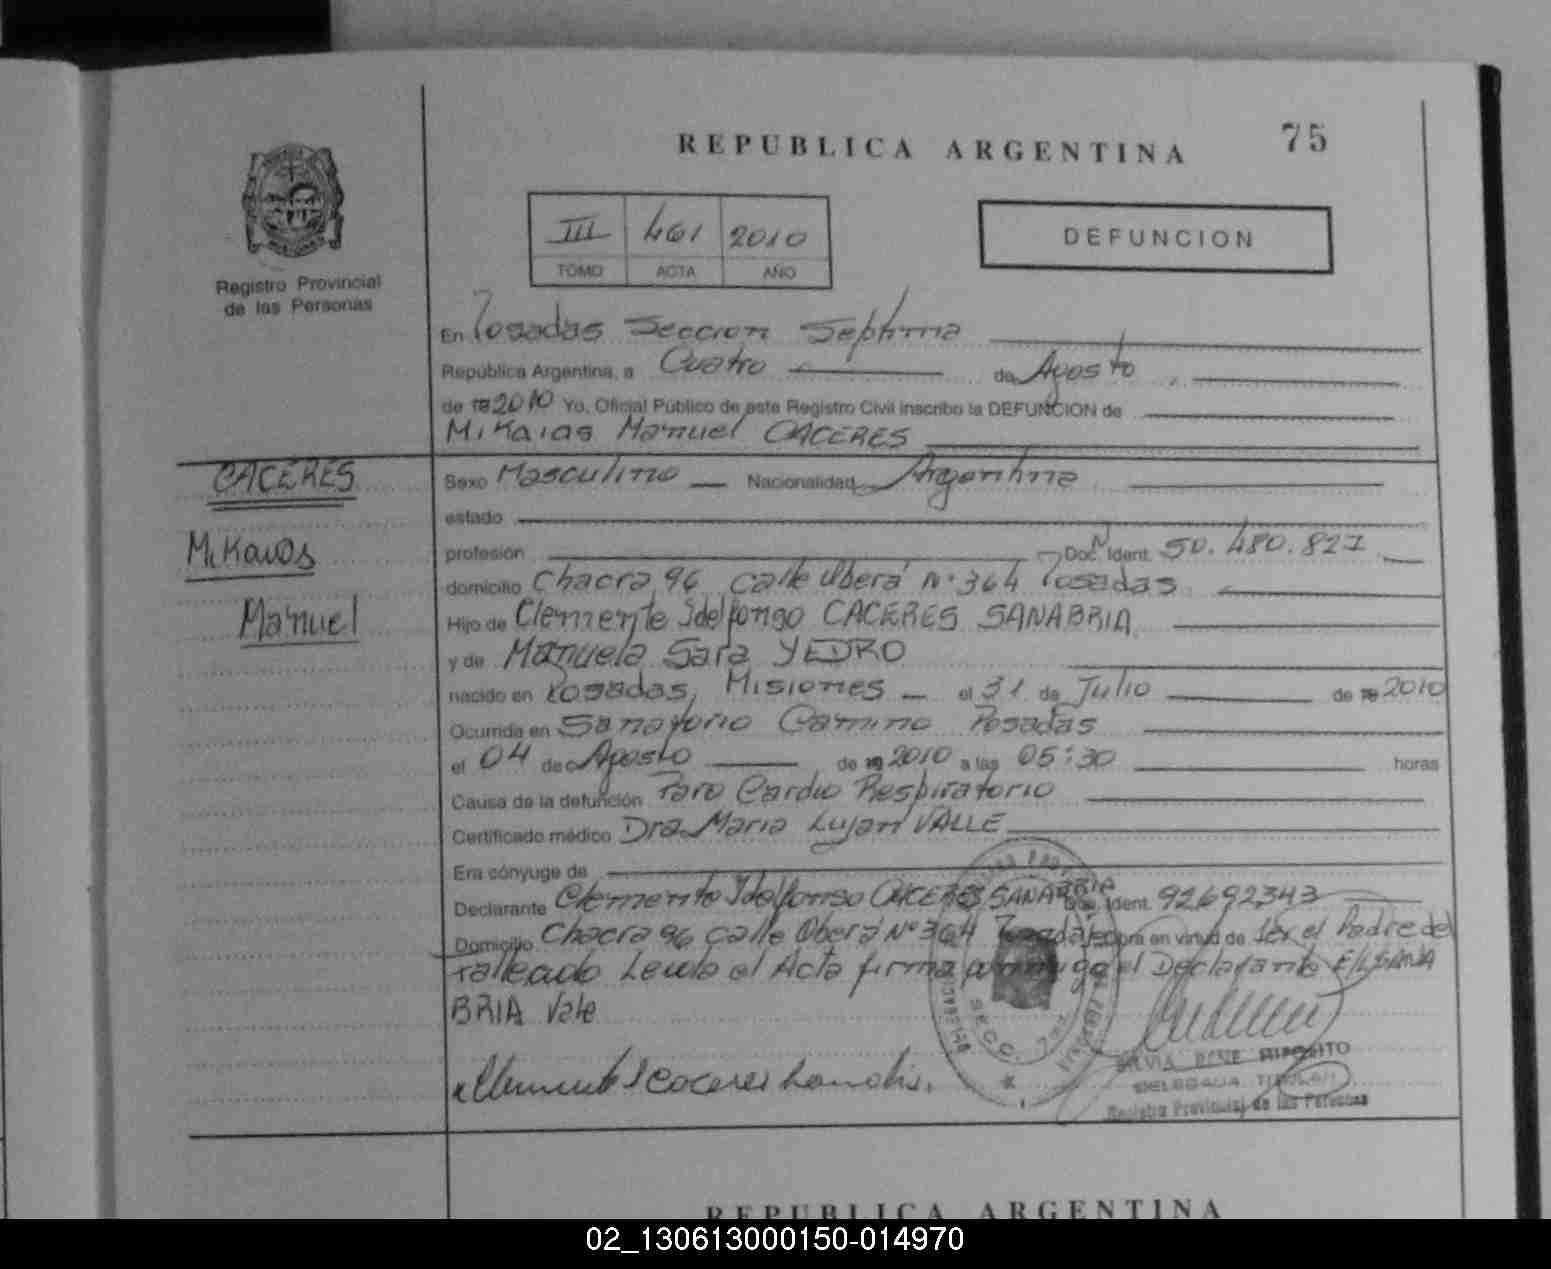 REPUBLICA ARGENTINA 75
III 461 2010
TOMO ACTA AÑO
DEFUNCION
Registro Provincial
de las Personas
En Posadas Seccion Septima
República Argentina, a Cuatro de Agosto
de 19 2010 Yo, Oficial Público de este Registro Civil inscribo la DEFUNCION de
Mikaias Manuel CACERES
CACERES
Mikaias
Manuel
Sexo Masculino Nacionalidad Argentina
estado
profesión Doc. Ident. 50.480.827
domicilio Chacra 96 calle Oberá N° 364 Posadas
Hijo de Clemente Idelfonso CACERES SANABRIA
y de Manuela Sara YEDRO
nacido en Posadas, Misiones el 31 de Julio de 19 2010
Ocurrida en Sanatorio Camino Posadas
el 04 de Agosto de 19 2010 a las 05:30 horas
Causa de la defunción Paro Cardio Respiratorio
Certificado médico Dra Maria Lujan VALLE
Era cónyuge de
Declarante Clemente Idelfonso CACERES SANABRIA Doc. Ident. 92692343
Domicilio Chacra 96 calle Oberá N° 364 Posadas obra en virtud de ser el Padre del
fallecido Leida el Acta firma conmigo el Declarante E/L SANA
BRIA Vale
SECC. 7
DELEGADA TITULAR
Registro Provincial de las Personas
REPUBLICA ARGENTINA
02_130613000150-014970